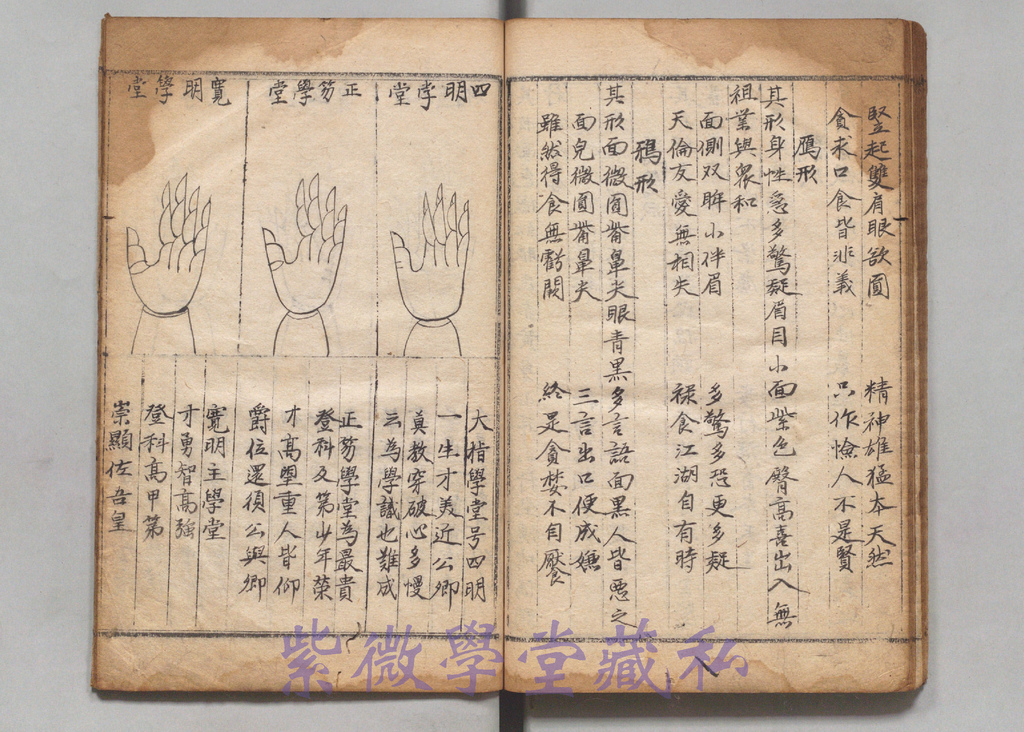 豎起雙肩眼欲圓　精神雄猛本天然
貪求口食皆非義　只作憸人不是賢
鴈形
其形身性急多驚疑眉目小面紫色臀高喜出入無
祖業與衆和
面側双眸小伴眉　多驚多恐更多疑
天倫友愛無相失　祿食江湖自有時
鴉形
其形面微圓觜鼻尖眼青黑多言語面黑人皆惡之
面皃微圓觜鼻尖　三言出口便成嫌
雖然得食無虧闕　終是貪婪不自厭
四明孝堂
正笏學堂
寬明學堂
大指學堂号四明
一生才美近公卿
莫教穿破心多慢
云為學識也難成
正笏學堂為最貴
登科及第少年榮
才高望重人皆仰
爵位還須公與卿
寬明主學堂
才勇智高強
登科高甲第
崇顯佐吾皇
紫微學堂藏私